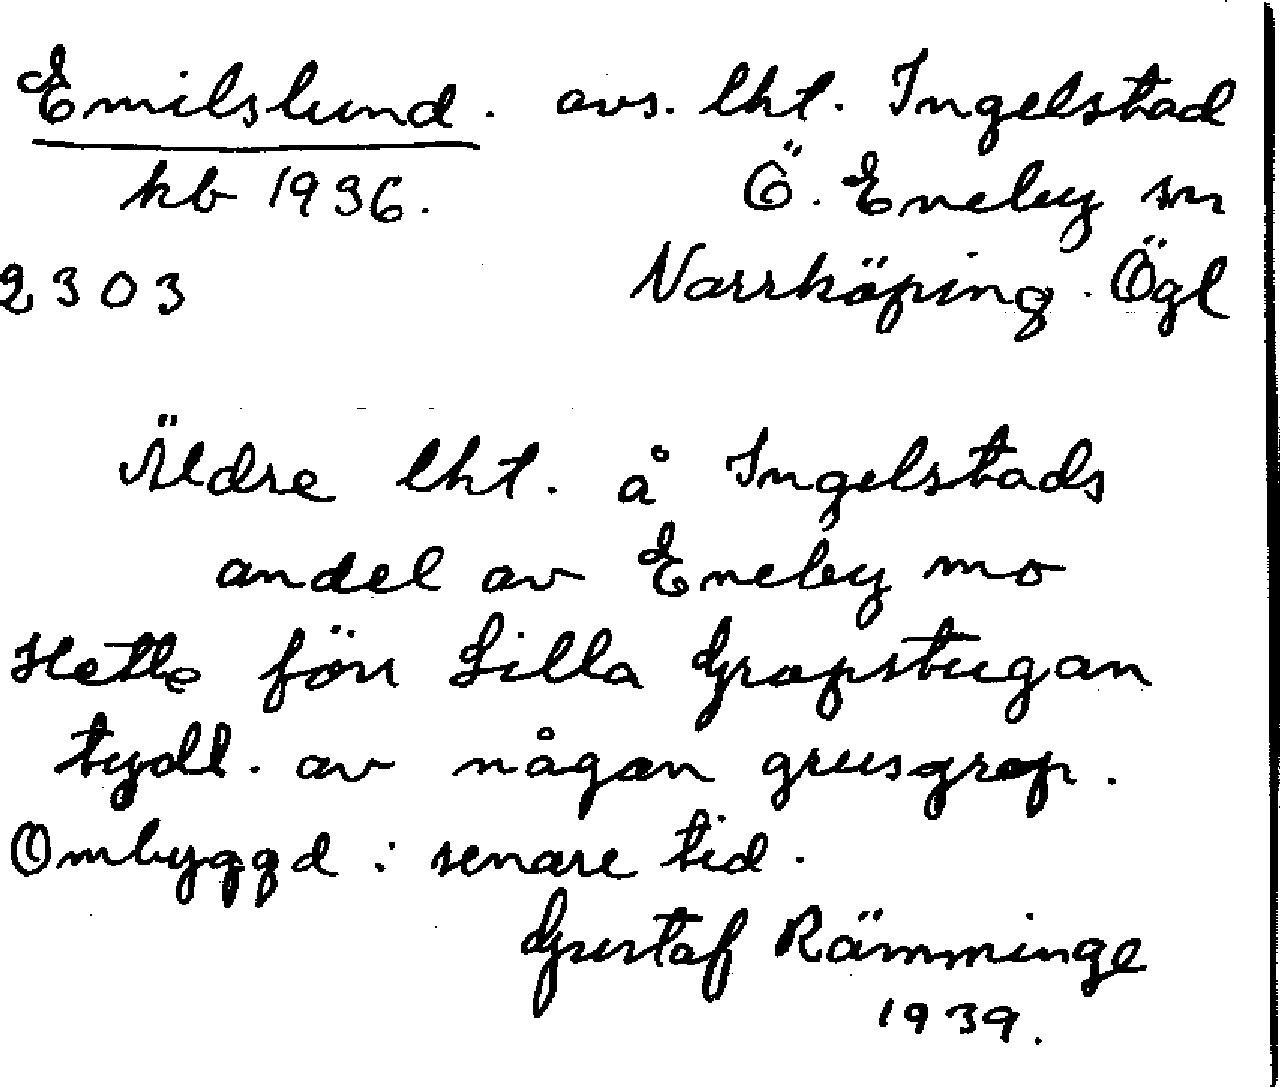 Emilslund. avs. lht. Ingelstad
kb 1936. Ö. Eneby sn
2303 Norrköping. Ögl
Äldre lht. å Ingelstads
andel av Eneby mo
Hette förr Lilla Gropstugan
tydl. av någon grusgrop.
Ombyggd i senare tid.
Gustaf Rämminge
1939.